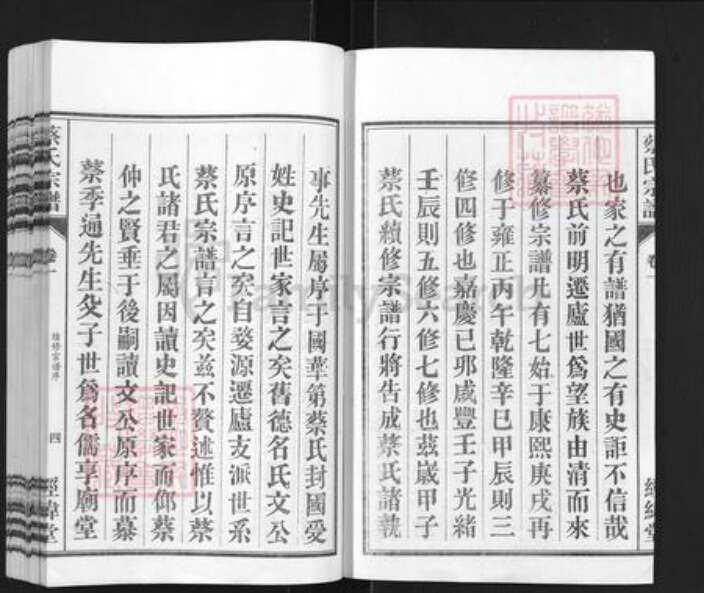 蔡氏宗譜
卷一
經緯堂
也家之有譜猶國之有史詎不信哉
蔡氏前明遷廬世爲望族由清而來
纂修宗譜凡有七始于康熙庚戌再
修于雍正丙午乾隆辛巳甲辰則三
修四修也嘉慶己邜咸豐壬子光緒
壬辰則五修六修七修也茲歲甲子
蔡氏續修宗譜行將告成蔡氏諸執
事先生屬序于國華第蔡氏封國受
姓史記世家言之矣舊德名氏文公
原序言之矣自婺源遷廬支派世系
蔡氏宗譜言之矣茲不贅述惟以蔡
氏諸君之屬因讀史記世家而仰蔡
仲之賢垂于後嗣讀文公原序而慕
蔡季通先生父子世爲名儒享廟堂
蔡氏宗譜
卷一
續修宗譜序
四
經緯堂
FamilySearch